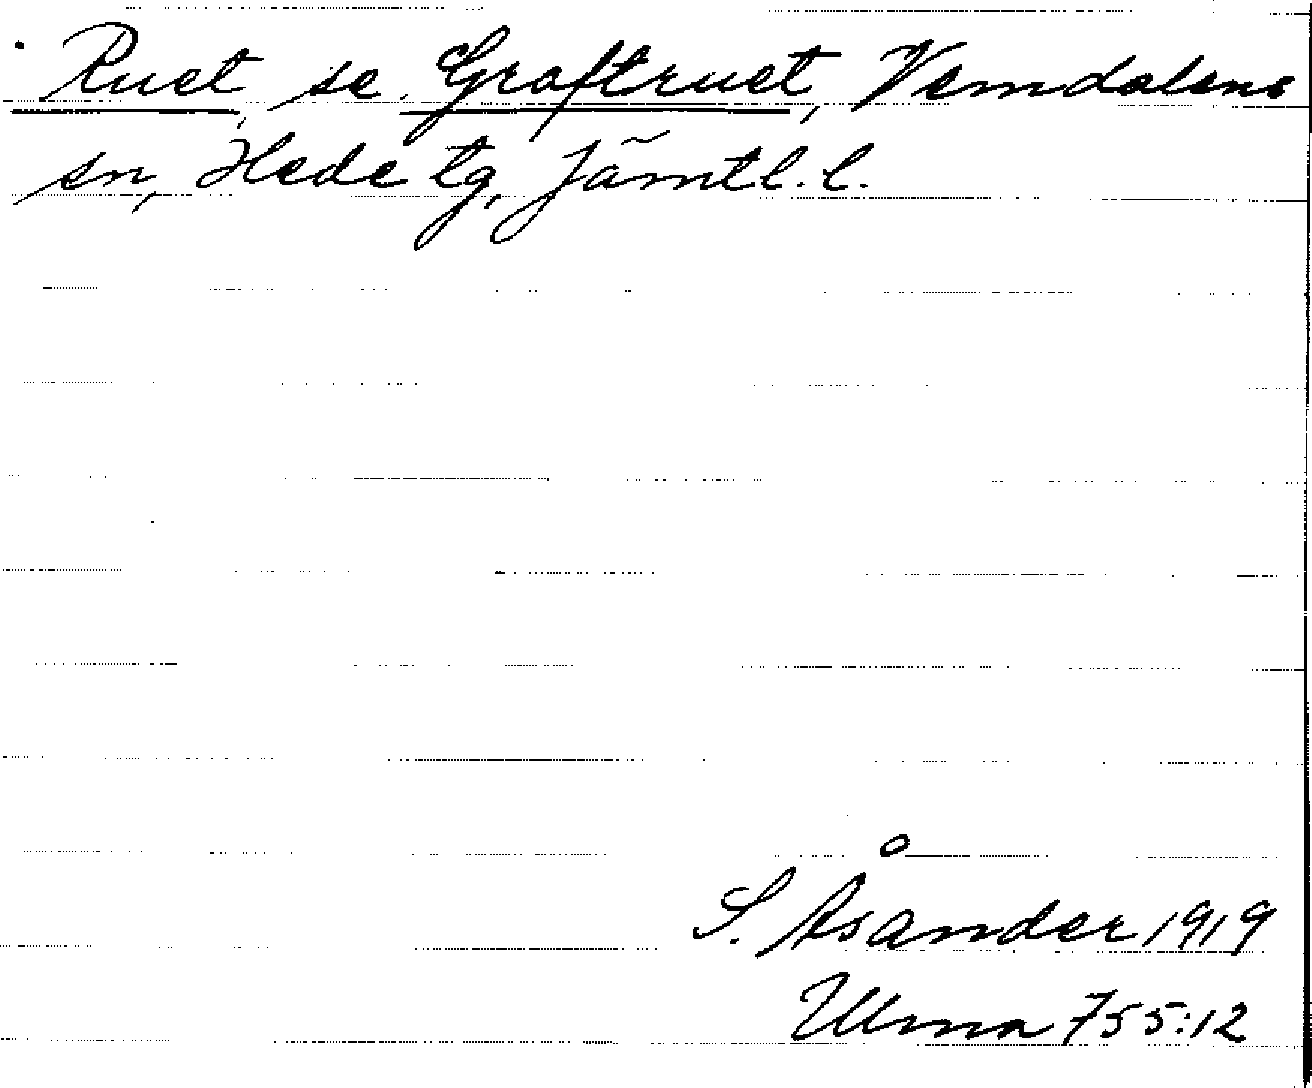 Ruet, se Graftruet, Vemdalens
sn, Hede tg, Jämtl. l.
S. Åsander 1919
Ulma 755:12